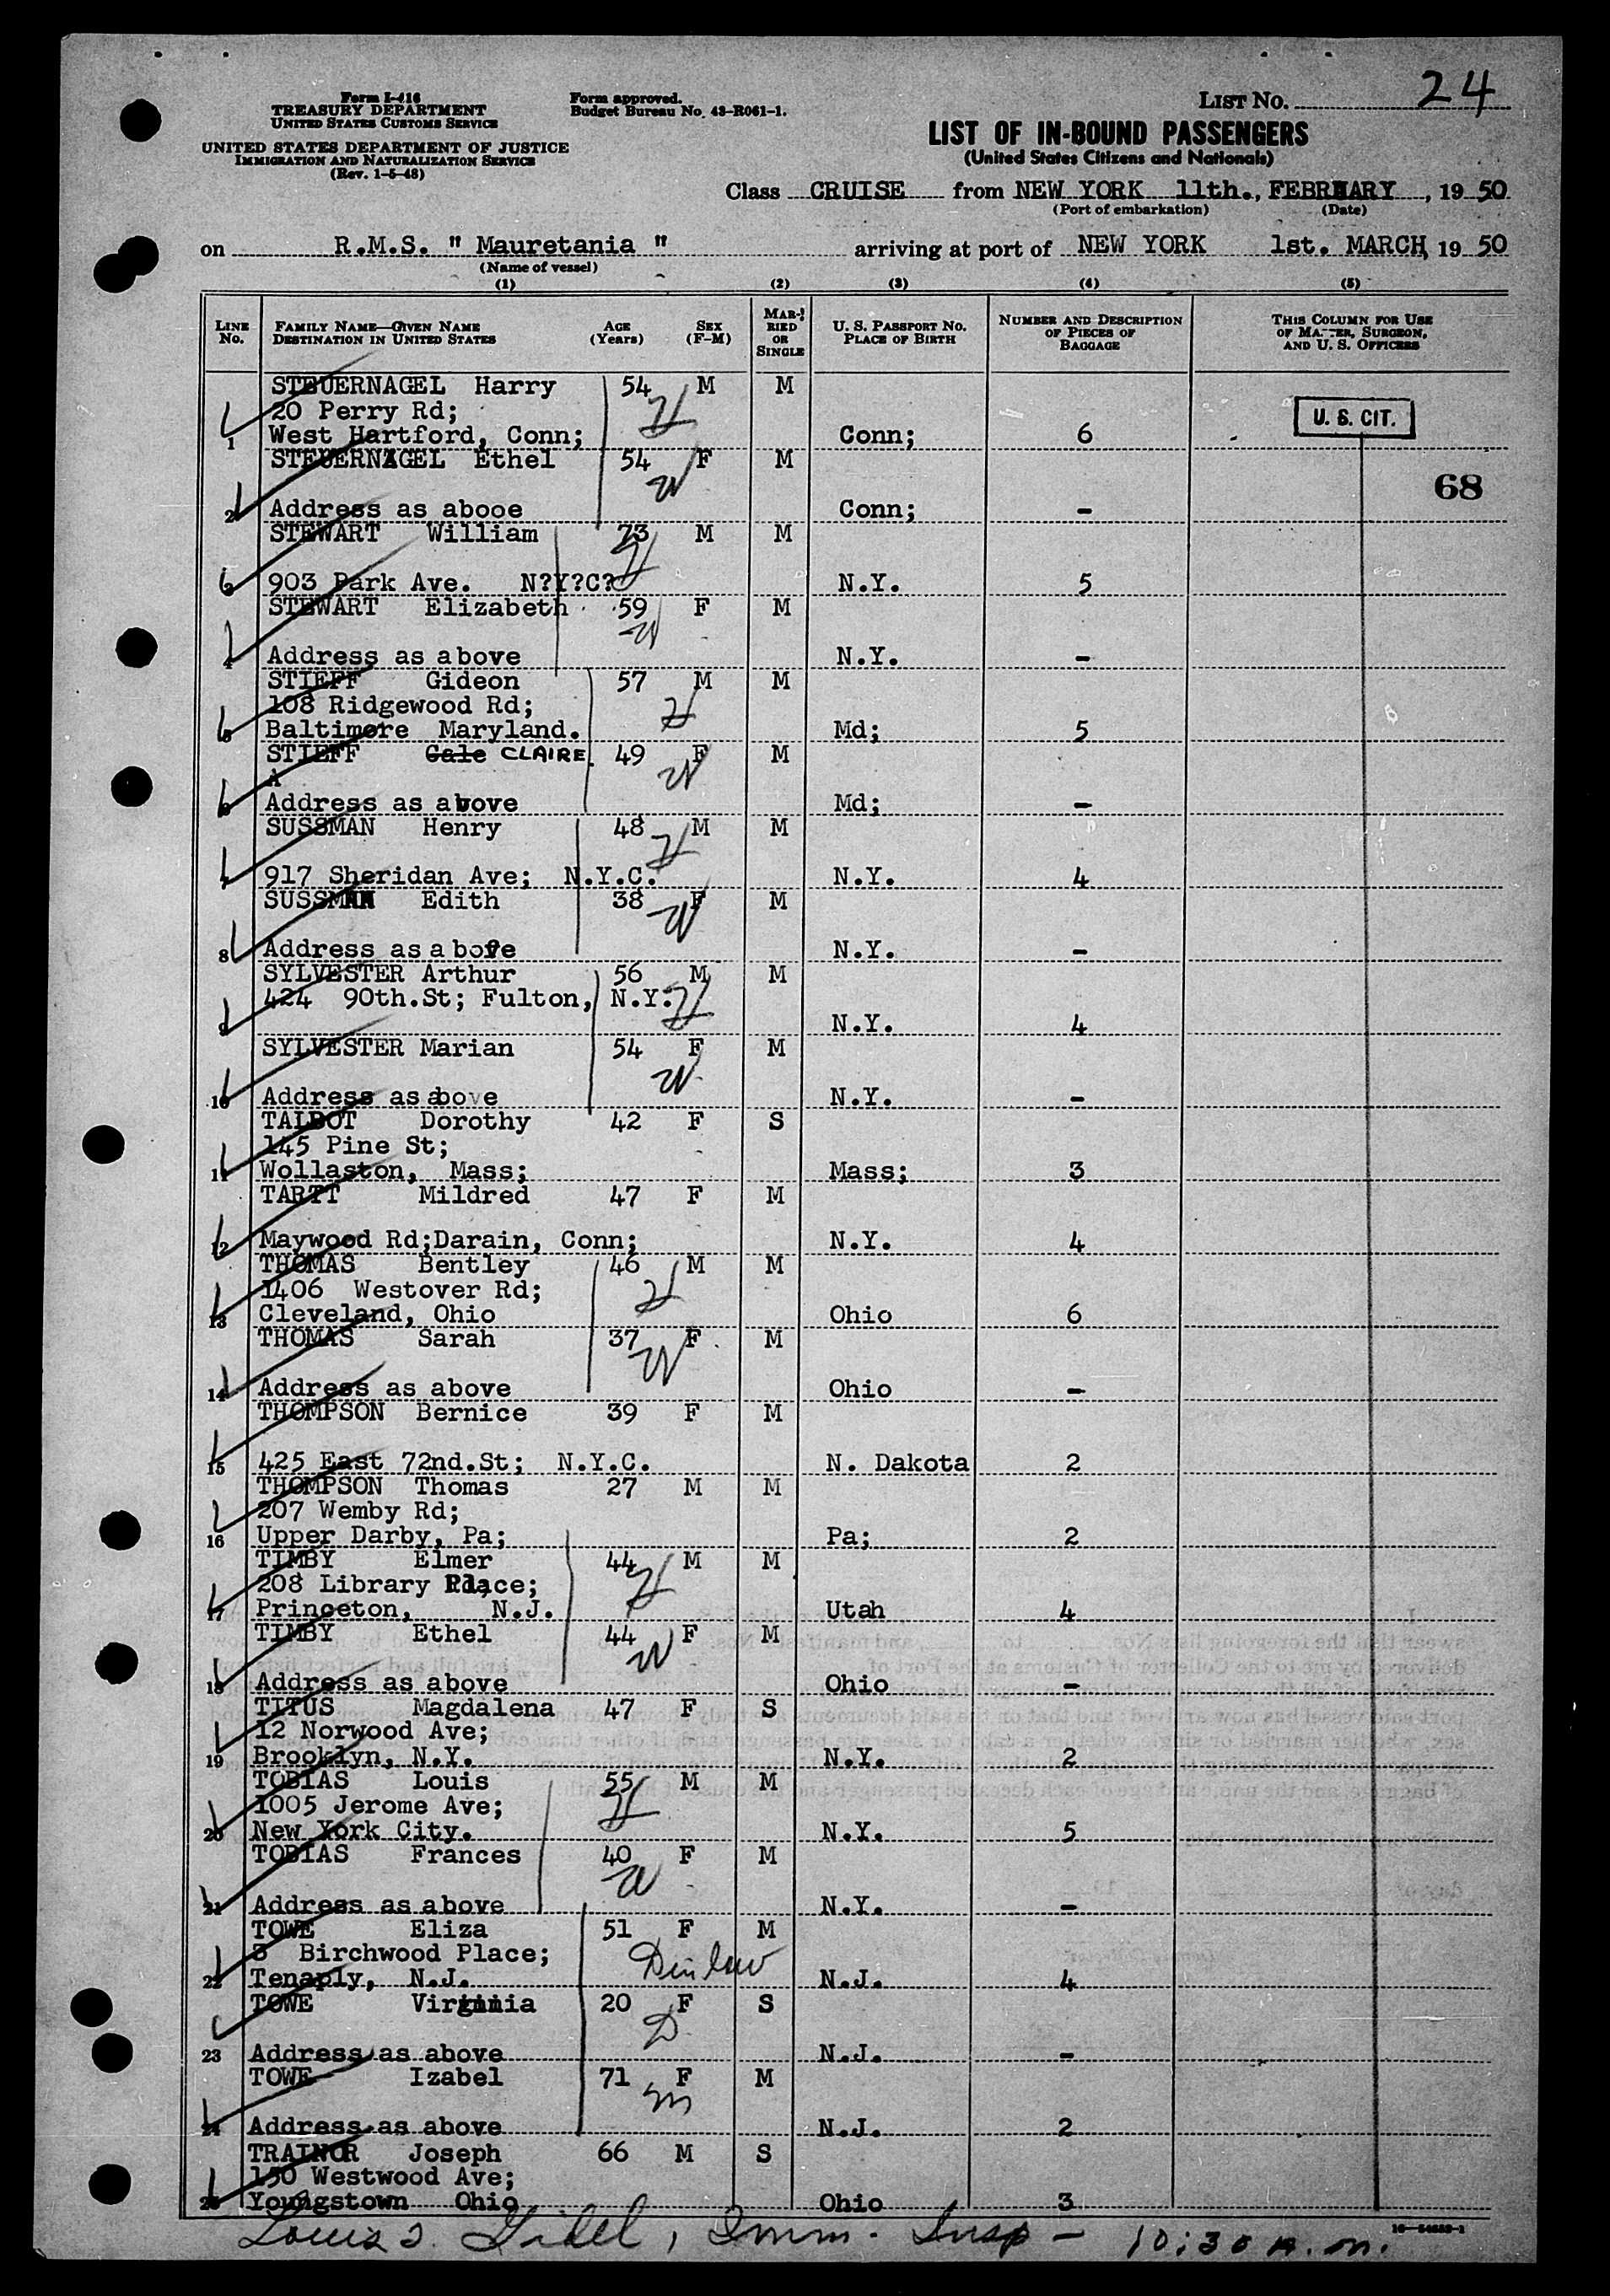 Form I-416
TREASURY DEPARTMENT
UNITED STATES CUSTOMS SERVICE
UNITED STATES DEPARTMENT OF JUSTICE
IMMIGRATION AND NATURALIZATION SERVICE
(Rev. 1-5-48)
Form approved.
Budget Bureau No. 43-R061-1.
LIST NO. 24
LIST OF IN-BOUND PASSENGERS
(United States Citizens and Nationals)
Class CRUISE from NEW YORK 11th., FEBRUARY, 19 50
(Port of embarkation) (Date)
on R.M.S. " Mauretania " arriving at port of NEW YORK 1st. MARCH, 19 50
(Name of vessel)
(1) (2) (3) (4) (5)
LINE NO. FAMILY NAME—GIVEN NAME DESTINATION IN UNITED STATES AGE (Years) SEX (F-M) MARRIED OR SINGLE U. S. PASSPORT NO. PLACE OF BIRTH NUMBER AND DESCRIPTION OF PIECES OF BAGGAGE THIS COLUMN FOR USE OF MASTER, SURGEON, AND U. S. OFFICERS
STEUERNAGEL Harry 54 M M
20 Perry Rd; H U. S. CIT.
1 West Hartford, Conn; Conn; 6
STEUERNAGEL Ethel 54 F M
W 68
2 Address as abooe Conn; -
STEWART William 73 M M
H
3 903 Park Ave. N?Y?C? N.Y. 5
STEWART Elizabeth 59 F M
W
4 Address as above N.Y. -
STIEFF Gideon 57 M M
108 Ridgewood Rd; H
5 Baltimore Maryland. Md; 5
STIEFF Gale CLAIRE 49 F M
A W
6 Address as above Md; -
SUSSMAN Henry 48 M M
H
7 917 Sheridan Ave; N.Y.C. N.Y. 4
SUSSMAN Edith 38 F M
W
8 Address as above N.Y. -
SYLVESTER Arthur 56 M M
424 90th.St; Fulton, N.Y. H
9 N.Y. 4
SYLVESTER Marian 54 F M
W
10 Address as above N.Y. -
TALBOT Dorothy 42 F S
145 Pine St;
11 Wollaston, Mass; Mass; 3
TARTT Mildred 47 F M
12 Maywood Rd;Darain, Conn; N.Y. 4
THOMAS Bentley 46 M M
1406 Westover Rd; H
13 Cleveland, Ohio Ohio 6
THOMAS Sarah 37 F M
W
14 Address as above Ohio -
THOMPSON Bernice 39 F M
15 425 East 72nd.St; N.Y.C. N. Dakota 2
THOMPSON Thomas 27 M M
207 Wemby Rd;
16 Upper Darby, Pa; Pa; 2
TIMBY Elmer 44 M M
208 Library Place; H
17 Princeton, N.J. Utah 4
TIMBY Ethel 44 F M
W
18 Address as above Ohio -
TITUS Magdalena 47 F S
12 Norwood Ave;
19 Brooklyn, N.Y. N.Y. 2
TOBIAS Louis 55 M M
1005 Jerome Ave; H
20 New York City. N.Y. 5
TOBIAS Frances 40 F M
W
21 Address as above N.Y. -
TOWE Eliza 51 F M
3 Birchwood Place; Dinlaw
22 Tenaply, N.J. N.J. 4
TOWE Virginia 20 F S
D
23 Address as above N.J. -
TOWE Izabel 71 F M
M
24 Address as above N.J. 2
TRAINOR Joseph 66 M S
150 Westwood Ave;
25 Youngstown Ohio Ohio 3
Louis J. Gidel, Imm. Insp - 10:30 A.m.